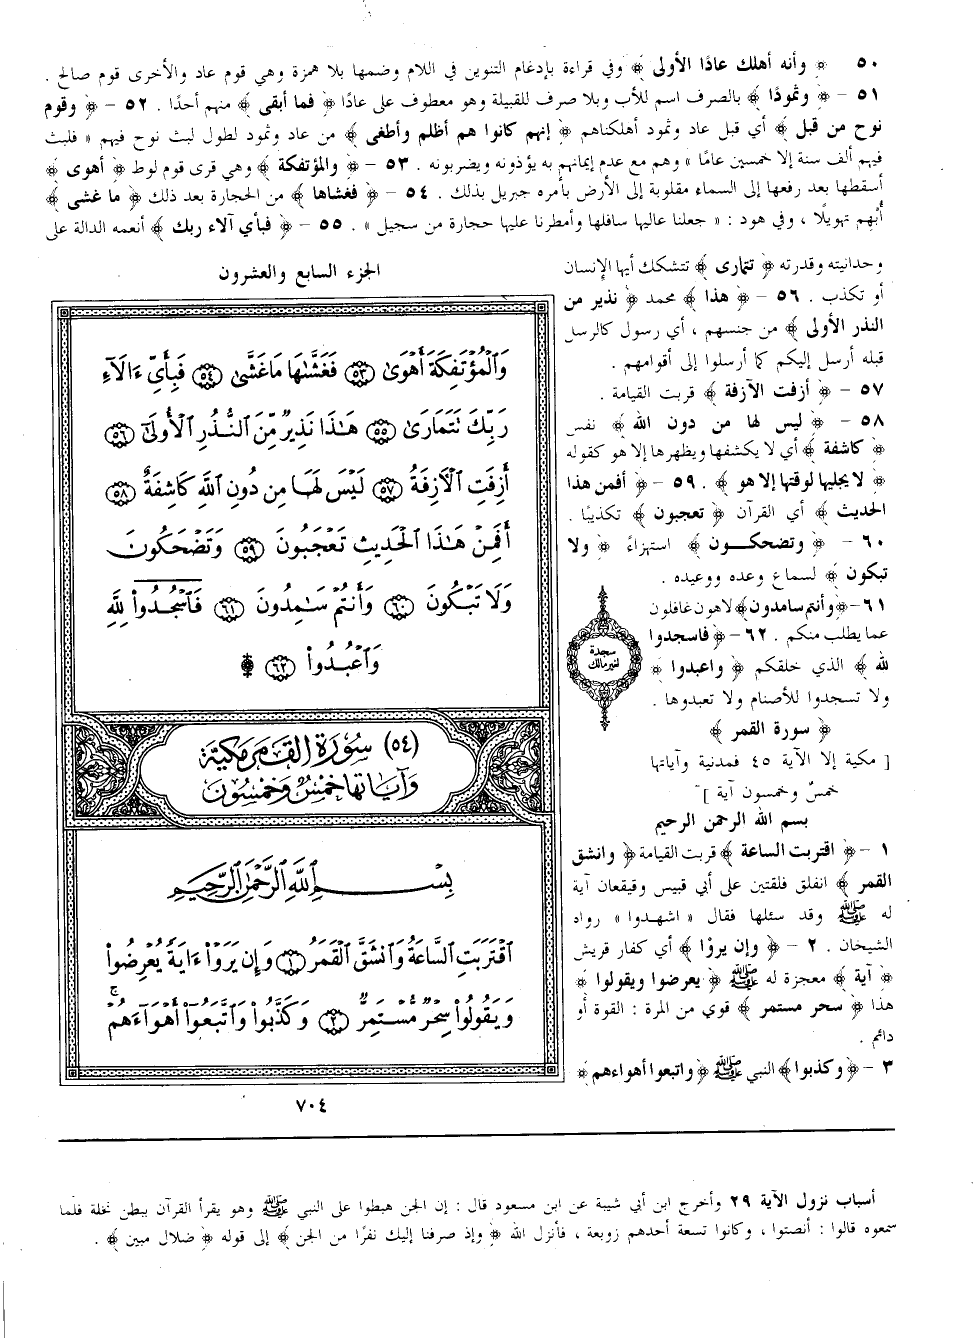 ٥٠ ﴿ وأنه أهلك عادًا الأولى ﴾ وفي قراءة بإدغام التنوين في اللام وضمها بلا همزة وهي قوم عاد والأخرى قوم صالح .
٥١ - ﴿ وثمودًا ﴾ بالصرف اسم للأب وبلا صرف للقبيلة وهو معطوف على عادًا ﴿ فما أبقى ﴾ منهم أحدًا . ٥٢ - ﴿ وقوم
نوح من قبل ﴾ أي قبل عاد وثمود أهلكناهم ﴿ إنهم كانوا هم أظلم وأطغى ﴾ من عاد وثمود لطول لبث نوح فيهم « فلبث
فيهم ألف سنة إلا خمسين عامًا » وهم مع عدم إيمانهم به يؤذونه ويضربونه . ٥٣ - ﴿ والمؤتفكة ﴾ وهي قرى قوم لوط ﴿ أهوى ﴾
أسقطها بعد رفعها إلى السماء مقلوبة إلى الأرض بأمره جبريل بذلك . ٥٤ - ﴿ فغشاها ﴾ من الحجارة بعد ذلك ﴿ ما غشى ﴾
أُبْهِم تهويلًا ، وفي هود : « جعلنا عاليها سافلها وأمطرنا عليها حجارة من سجيل » . ٥٥ - ﴿ فبأي آلاء ربك ﴾ أنعمه الدالة على
وحدانيته وقدرته ﴿ تتمارى ﴾ تتشكك أيها الإنسان
أو تكذب . ٥٦ - ﴿ هذا ﴾ محمد ﴿ نذير من
النذر الأولى ﴾ من جنسهم ، أي رسول كالرسل
قبله أرسل إليكم كما أرسلوا إلى أقوامهم .
٥٧ - ﴿ أزفت الآزفة ﴾ قربت القيامة .
٥٨ - ﴿ ليس لها من دون الله ﴾ نفس
﴿ كاشفة ﴾ أي لا يكشفها ويظهرها إلا هو كقوله
﴿ لا يجليها لوقتها إلا هو ﴾ . ٥٩ - ﴿ أفمن هذا
الحديث ﴾ أي القرآن ﴿ تعجبون ﴾ تكذيبًا .
٦٠ - ﴿ وتضحكون ﴾ استهزاءً ﴿ ولا
تبكون ﴾ لسماع وعده ووعيده .
٦١ - ﴿ وأنتم سامدون ﴾ لاهون غافلون
عما يطلب منكم . ٦٢ - ﴿ فاسجدوا
لله ﴾ الذي خلقكم ﴿ واعبدوا ﴾
ولا تسجدوا للأصنام ولا تعبدوها .
﴿ سورة القمر ﴾
[ مكية إلا الآية ٤٥ فمدنية وآياتها
خمسٌ وخمسون آية ]
بسم الله الرحمن الرحيم
١ - ﴿ اقتربت الساعة ﴾ قربت القيامة ﴿ وانشق
القمر ﴾ انفلق فلقتين على أبي قبيس وقيقعان آية
له ﷺ وقد سئلها فقال « اشهدوا » رواه
الشيخان . ٢ - ﴿ وإن يروْا ﴾ أي كفار قريش
﴿ آية ﴾ معجزة له ﷺ ﴿ يعرضوا ويقولوا ﴾
هذا ﴿ سحر مستمر ﴾ قوي من المرة : القوة أو
دائم .
٣ - ﴿ وكذبوا ﴾ النبي ﷺ ﴿ واتبعوا أهواءهم ﴾
سجدة
لغير مالك
الجزء السابع والعشرون
وَٱلْمُؤْتَفِكَةَ أَهْوَىٰ ٥٣ فَغَشَّىٰهَا مَا غَشَّىٰ ٥٤ فَبِأَىِّ ءَالَآءِ
رَبِّكَ تَتَمَارَىٰ ٥٥ هَٰذَا نَذِيرٌ مِّنَ ٱلنُّذُرِ ٱلْأُولَىٰٓ ٥٦
أَزِفَتِ ٱلْءَازِفَةُ ٥٧ لَيْسَ لَهَا مِن دُونِ ٱللَّهِ كَاشِفَةٌ ٥٨
أَفَمِنْ هَٰذَا ٱلْحَدِيثِ تَعْجَبُونَ ٥٩ وَتَضْحَكُونَ
وَلَا تَبْكُونَ ٦٠ وَأَنتُمْ سَٰمِدُونَ ٦١ فَٱسْجُدُوا۟ لِلَّهِ
وَٱعْبُدُوا۟ ٦٢
(٥٤) سُورَةُ القَمَرِ مَكِّيَّة
وَآيَاتُهَا خَمْسٌ وَخَمْسُونَ
بِسْمِ ٱللَّهِ ٱلرَّحْمَٰنِ ٱلرَّحِيمِ
ٱقْتَرَبَتِ ٱلسَّاعَةُ وَٱنشَقَّ ٱلْقَمَرُ ١ وَإِن يَرَوْا۟ ءَايَةً يُعْرِضُوا۟
وَيَقُولُوا۟ سِحْرٌ مُّسْتَمِرٌّ ٢ وَكَذَّبُوا۟ وَٱتَّبَعُوٓا۟ أَهْوَآءَهُمْ ۚ
٧٠٤
أسباب نزول الآية ٢٩ وأخرج ابن أبي شيبة عن ابن مسعود قال : إن الجن هبطوا على النبي ﷺ وهو يقرأ القرآن ببطن نخلة فلما
سمعوه قالوا : أنصتوا ، وكانوا تسعة أحدهم زوبعة ، فأنزل الله ﴿ وإذ صرفنا إليك نفرًا من الجن ﴾ إلى قوله ﴿ ضلال مبين ﴾ .